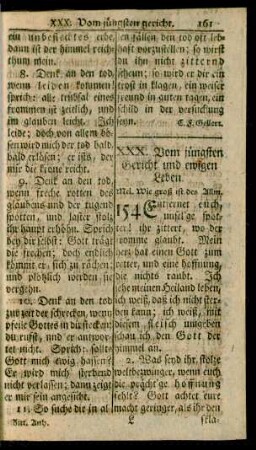 XXX. Vom jüngsten gericht. 161
ein unbeflecktes erbe,
dann ist der himmel reich-
thum mein.
8. Denk an den tod,
wenn leiden kommen;
sprich: alle trübsal eines
frommen ist zeitlich, und
im glauben leicht. Ich
leide; doch von allem bö-
sen wird mich der tod bald,
bald erlösen; er ists, der
mir die krone reicht.
9. Denk an den tod,
wenn freche rotten des
glaubens und der tugend
spotten, und laster stolz
ihr haupt erhöhn. Sprich
bey dir selbst: Gott trägt
die frechen; doch endlich
kommt er, sich zu rächen;
und plötzlich werden sie
vergehn.
10. Denk an den tod
zur zeit der schrecken, wenn
pfeile Gottes in dir stecken;
du rufst, und er antwortet
nicht. Sprich: sollte
Gott mich ewig hassen?
Er wird mich sterbend
nicht verlassen; dann zeiget
er mir sein angesicht.
11. So suche dir in al-
But. Anh.
len fällen den tod oft leb-
haft vorzustellen; so wirst
du ihn nicht zitternd
scheun; so wird er dir ein
trost in klagen, ein weiser
freund in guten tagen, ein
schild in der versuchung
seyn.
C. F. Gellert.
XXX. Vom jüngsten
Gericht und ewigen
Leben.
Mel. Wie groß ist des Allm.
154 Entfernet euch,
unsel'ge spöt-
ter! ihr zittert, wo der
fromme glaubt. Mein
herz hat einen Gott zum
retter, und eine hoffnung,
die nichts raubt. Ich
seh meinen Heiland leben,
ich weiß, daß ich nicht ster-
ben kann; ich weiß, mit
diesem fleisch umgeben
schau ich den Gott der
himmel an.
2. Was send ihr, stolze
weltbezwinger, wenn euch
die prächt'ge hoffnung
fehlt? Gott achtet eure
macht geringer, als ihr den
L skla-